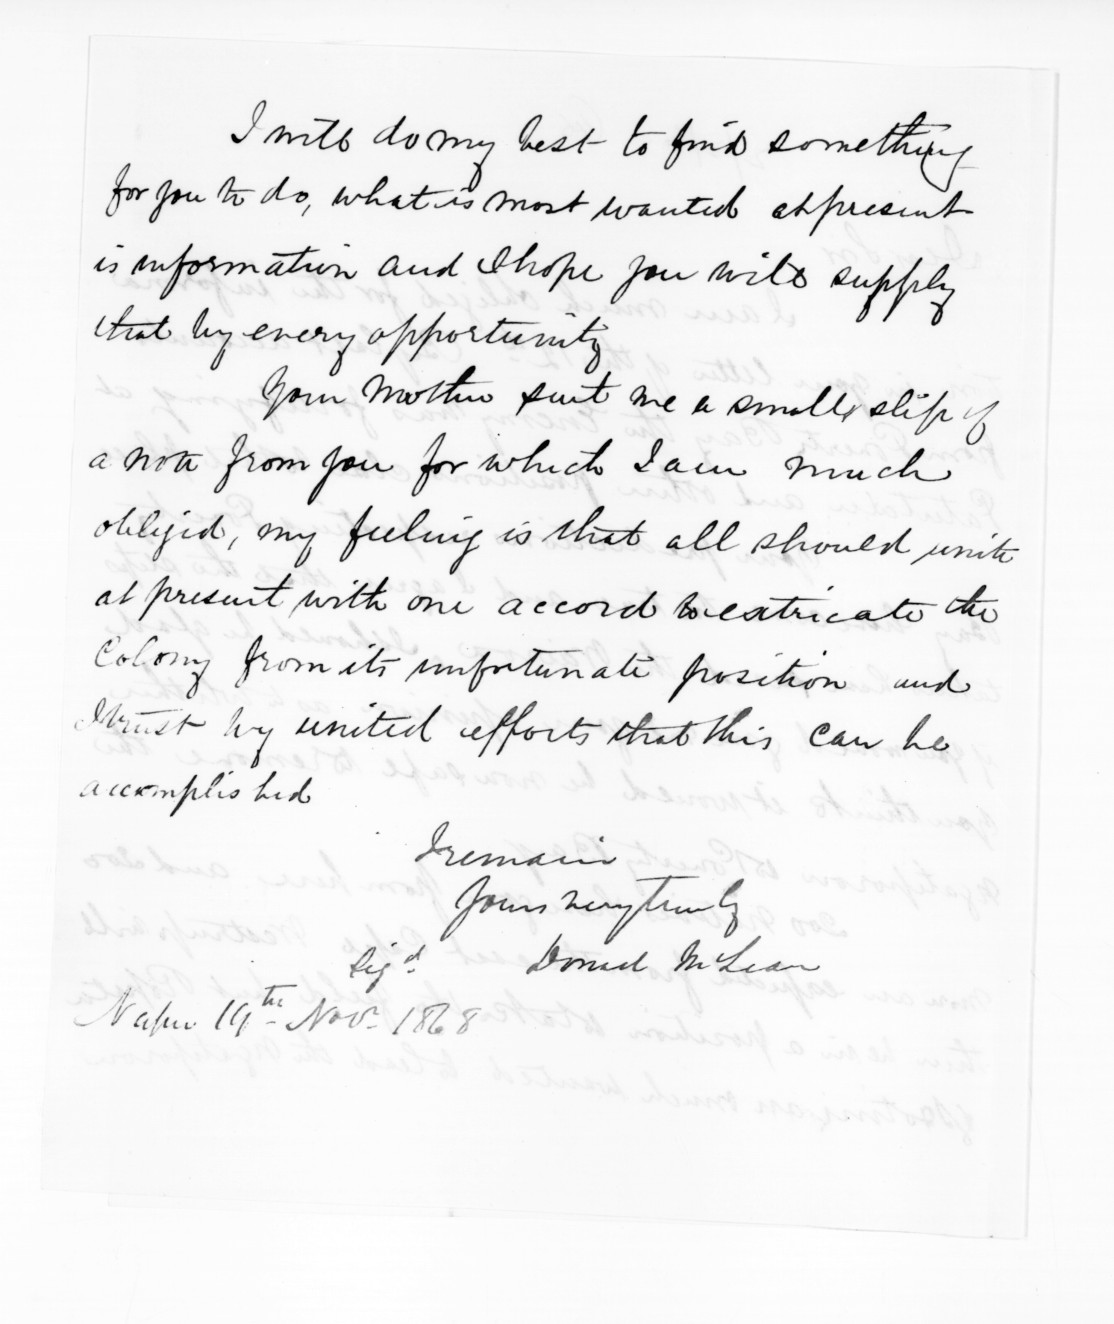 I will do my best to find something
for you to do, what is most wanted at present
is information and I hope you will supply
that by every opportunity
Your Mother sent me a small slip of
a note from you for which I am much
obliged, my feeling is that all should unite
at present with one accord to extricate the
Colony from its unfortunate position and
I trust by united efforts that this can be
accomplished
I remain
Yours very truly
Sigd. Donald McLean
Napier 19th Novr. 1868